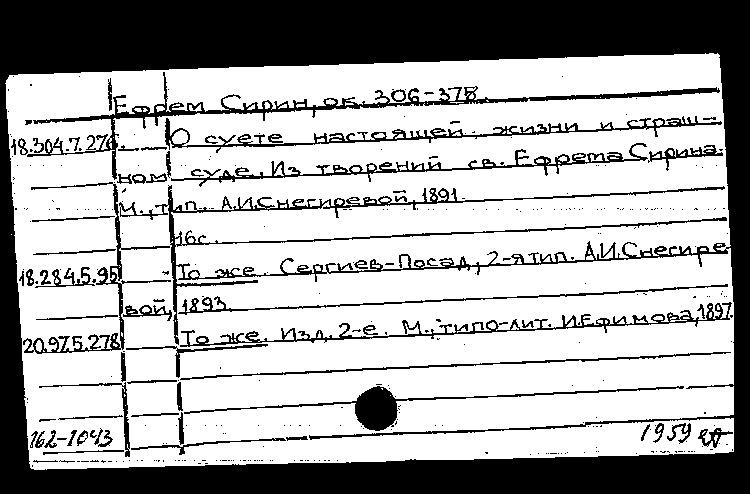 Ефрем Сирин, ок. 306-378.
18.304.7.276. О суете настоящей жизни и страш-
ном суде. Из творений св. Ефрема Сирина.
М., тип. А.И.Снегиревой, 1891.
16с.
18.284.5.95 То же. Сергиев-Посад, 2-я тип. А.И.Снегире-
вой, 1893.
20.97.5.278 То же. Изд. 2-е. М., типо-лит. И.Ефимова, 1897.
162-1043 1959